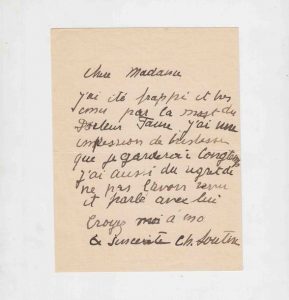 Chere Madame
j'ai été frappé et tres
emu par la mort du
Docteur Faure j'ai une
impression de tristesse
que je garderai longtemps
j'ai aussi du regret de
ne pas l'avoir revu
et parlé avec lui
Croyez moi a ma
Sincerité Ch. Soutine